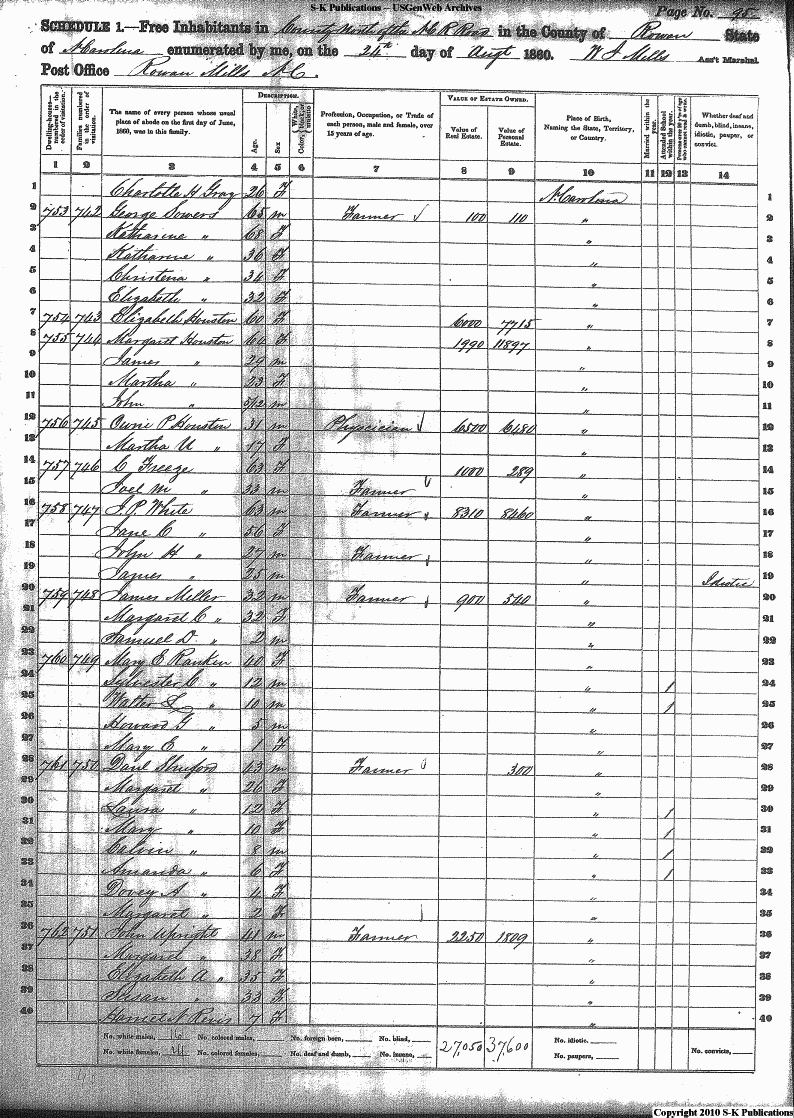 S-K Publications -- USGenWeb Archives
Page No. 95
SCHEDULE 1.—Free Inhabitants in County North of the N C R Road in the County of Rowan State
of N Carolina enumerated by me, on the 24th day of Augt 1860. W J Mills Ass't Marshal.
Post Office Rowan Mills N C.
Dwelling-houses—numbered in the order of visitation.
Families numbered in the order of visitation.
The name of every person whose usual place of abode on the first day of June, 1860, was in this family.
DESCRIPTION.
Age.
Sex
Color,
Profession, Occupation, or Trade of each person, male and female, over 15 years of age.
VALUE OF ESTATE OWNED.
Value of Real Estate.
Value of Personal Estate.
Place of Birth, Naming the State, Territory, or Country.
Married within the year.
Attended School within the year.
Whether deaf and dumb, blind, insane, idiotic, pauper, or convict.
1 2 3 4 5 6 7 8 9 10 11 12 13 14
1 Charlotte H Gray 26 F N. Carolina 1
2 753 742 George Sowers 65 m Farmer 100 110 " 2
3 Katharine " 68 F " 3
4 Katharine " 36 F " 4
5 Christena " 34 F " 5
6 Elizabeth " 32 F " 6
7 754 743 Elizabeth Houston 60 F 6000 7715 " 7
8 755 744 Margaret Houston 64 F 1990 11897 " 8
9 James " 29 m " 9
10 Martha " 23 F " 10
11 John " 5/12 m " 11
12 756 745 P Houston 31 m Physcician 6500 6480 " 12
13 Martha U " 17 F " 13
14 757 746 C Freeze 63 F 1000 289 " 14
15 Joel M " 33 m Farmer " 15
16 758 747 J. P. White 63 m Farmer 8310 8460 " 16
17 Jane C " 56 F " 17
18 John H " 27 m Farmer " 18
19 James " 25 m " Idiotic 19
20 759 748 James Miller 32 m Farmer 900 540 " 20
21 Margaret C " 32 F " 21
22 Samuel D " 2 m " 22
23 760 749 Mary E Rankin 40 F " 23
24 Sylvester C " 12 m " 1 24
25 Walter L " 10 m " 1 25
26 Howard G " 5 m " 26
27 Mary E " 1 F " 27
28 761 750 Danl Shuford 43 m Farmer 300 " 28
29 Margaret " 26 F " 29
30 Laura " 12 F " 1 30
31 Mary " 10 F " 1 31
32 Calvin " 8 m " 1 32
33 Amanda " 6 F " 1 33
34 Dovey A " 4 F " 34
35 Margaret " 2 F " 35
36 762 751 John Upright 41 m Farmer 2250 1809 " 36
37 Margaret " 38 F " 37
38 Elizabeth A " 35 F " 38
39 Susan " 33 F " 39
40 7 F " 40
No. white males, 16 No. colored males, No. foreign born, No. blind, 27,050 37,600 No. idiotic.
No. white females, No. colored females, No. deaf and dumb, No. insane, No. paupers, No. convicts,
Copyright 2010 S-K Publications